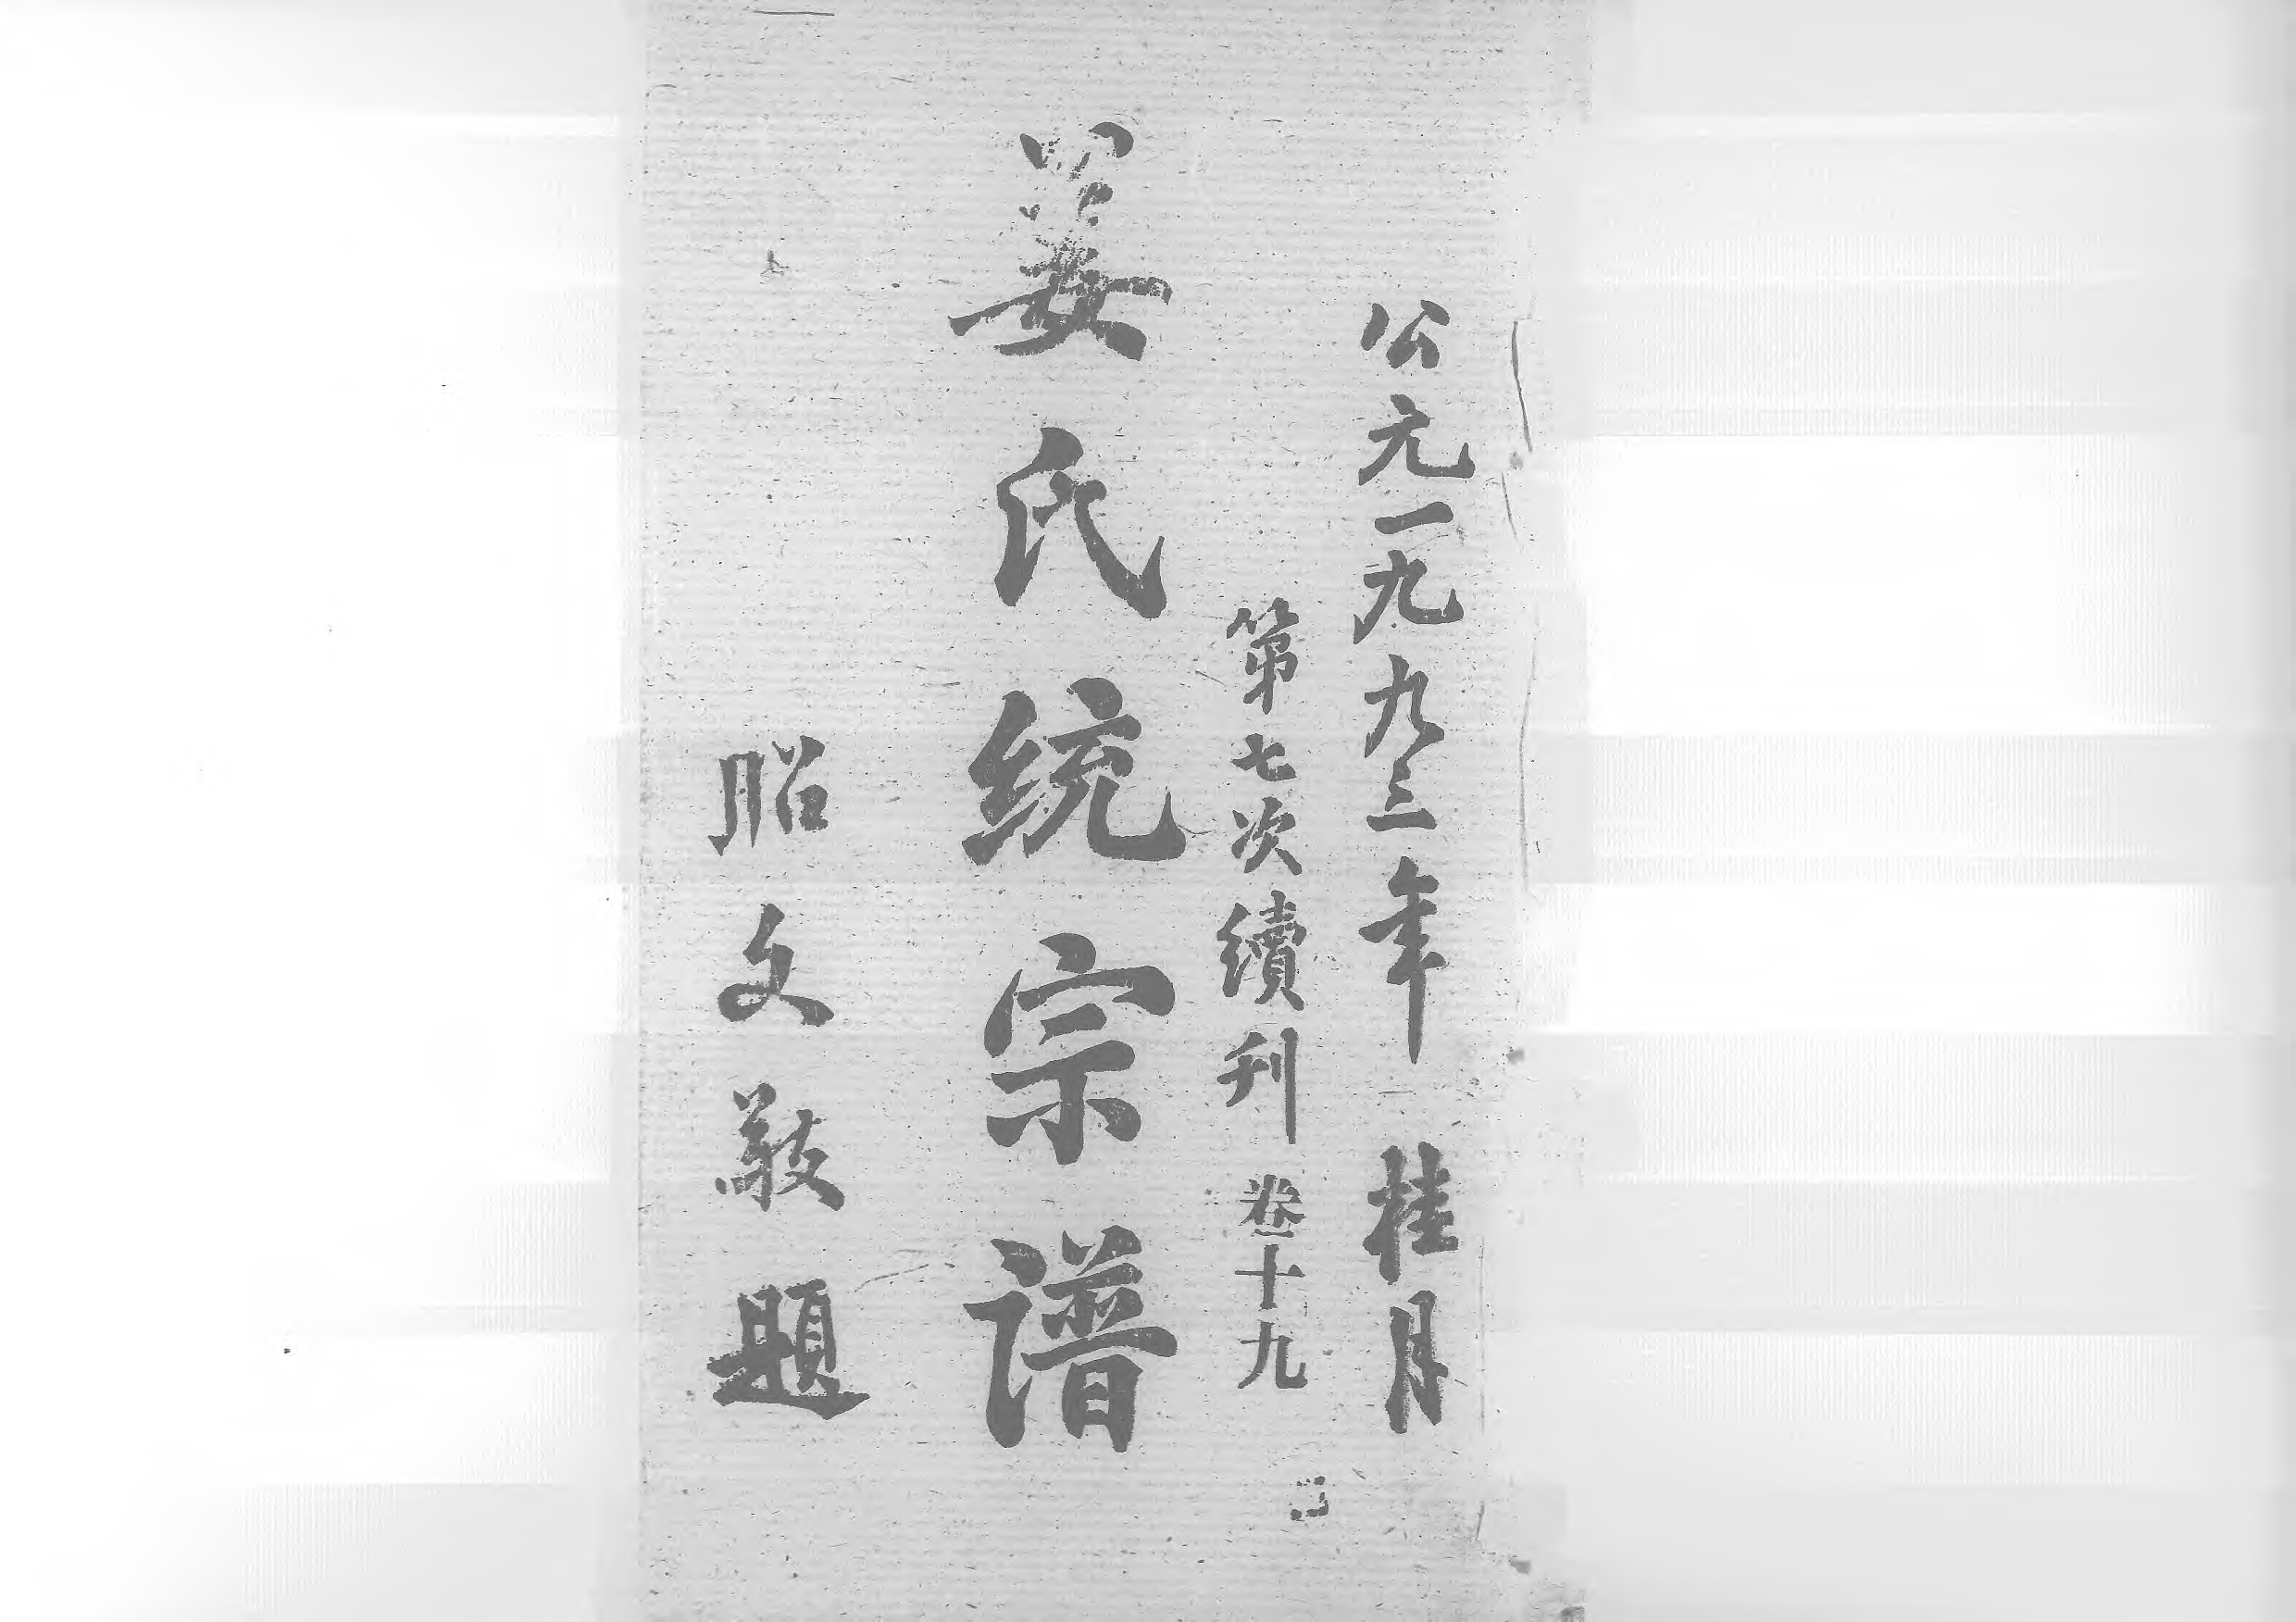 公元一九九三年 桂月
第七次續刊 卷十九
姜氏统宗谱
昭文敬題